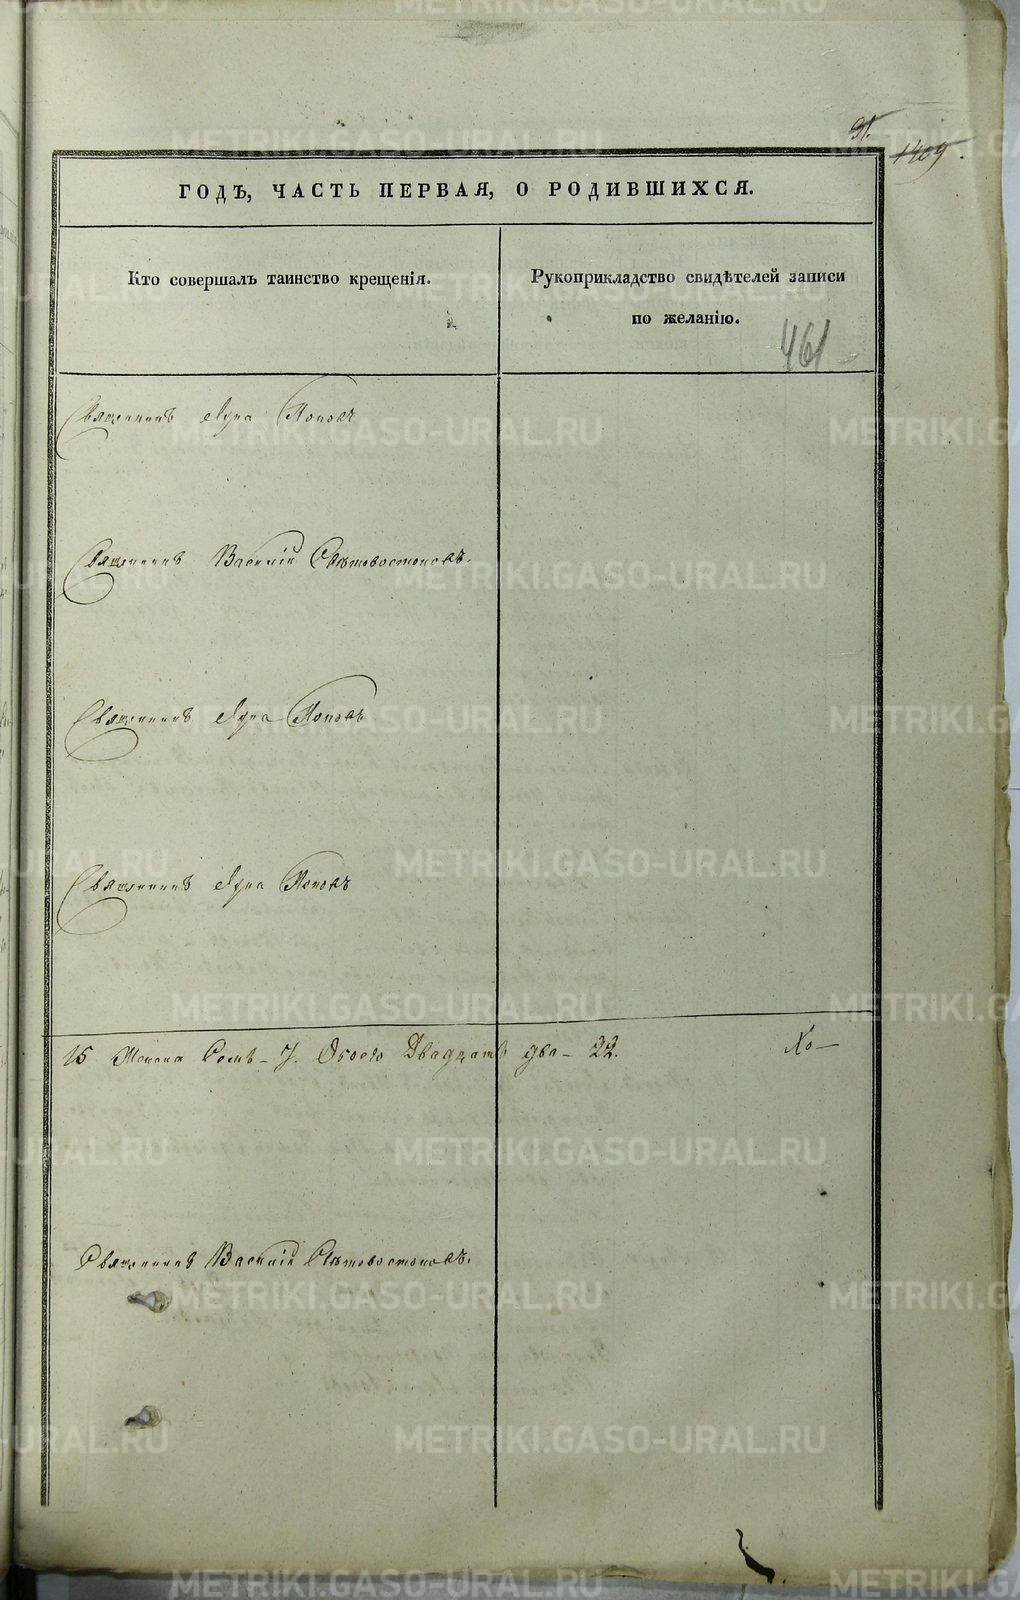 91.
1409.
ГОДЪ, ЧАСТЬ ПЕРВАЯ, О РОДИВШИХСЯ.
Кто совершалъ таинство крещенія.
Рукоприкладство свидѣтелей записи
по желанію.
461
Священникъ Лука Поповъ
Священникъ Василій Свѣтовостоковъ.
Священникъ Лука Поповъ
Священникъ Лука Поповъ
15 Женска Семь - 7. Обоего Двадцать два - 22.
Священникъ Василій Свѣтовостоковъ.
METRIKI.GASO-URAL.RU